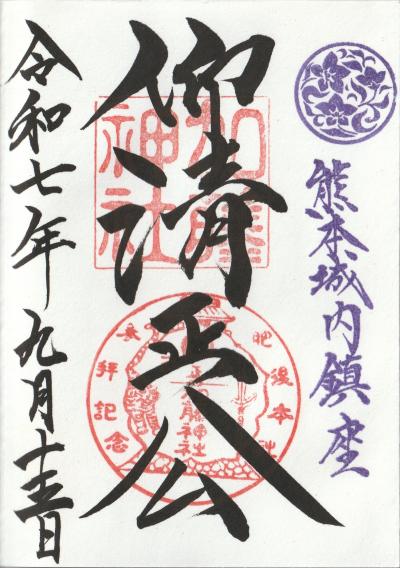 熊本城内鎮座
仰清正公
加藤神社
肥後本社
参拝記念
加藤神社
令和七年九月十五日